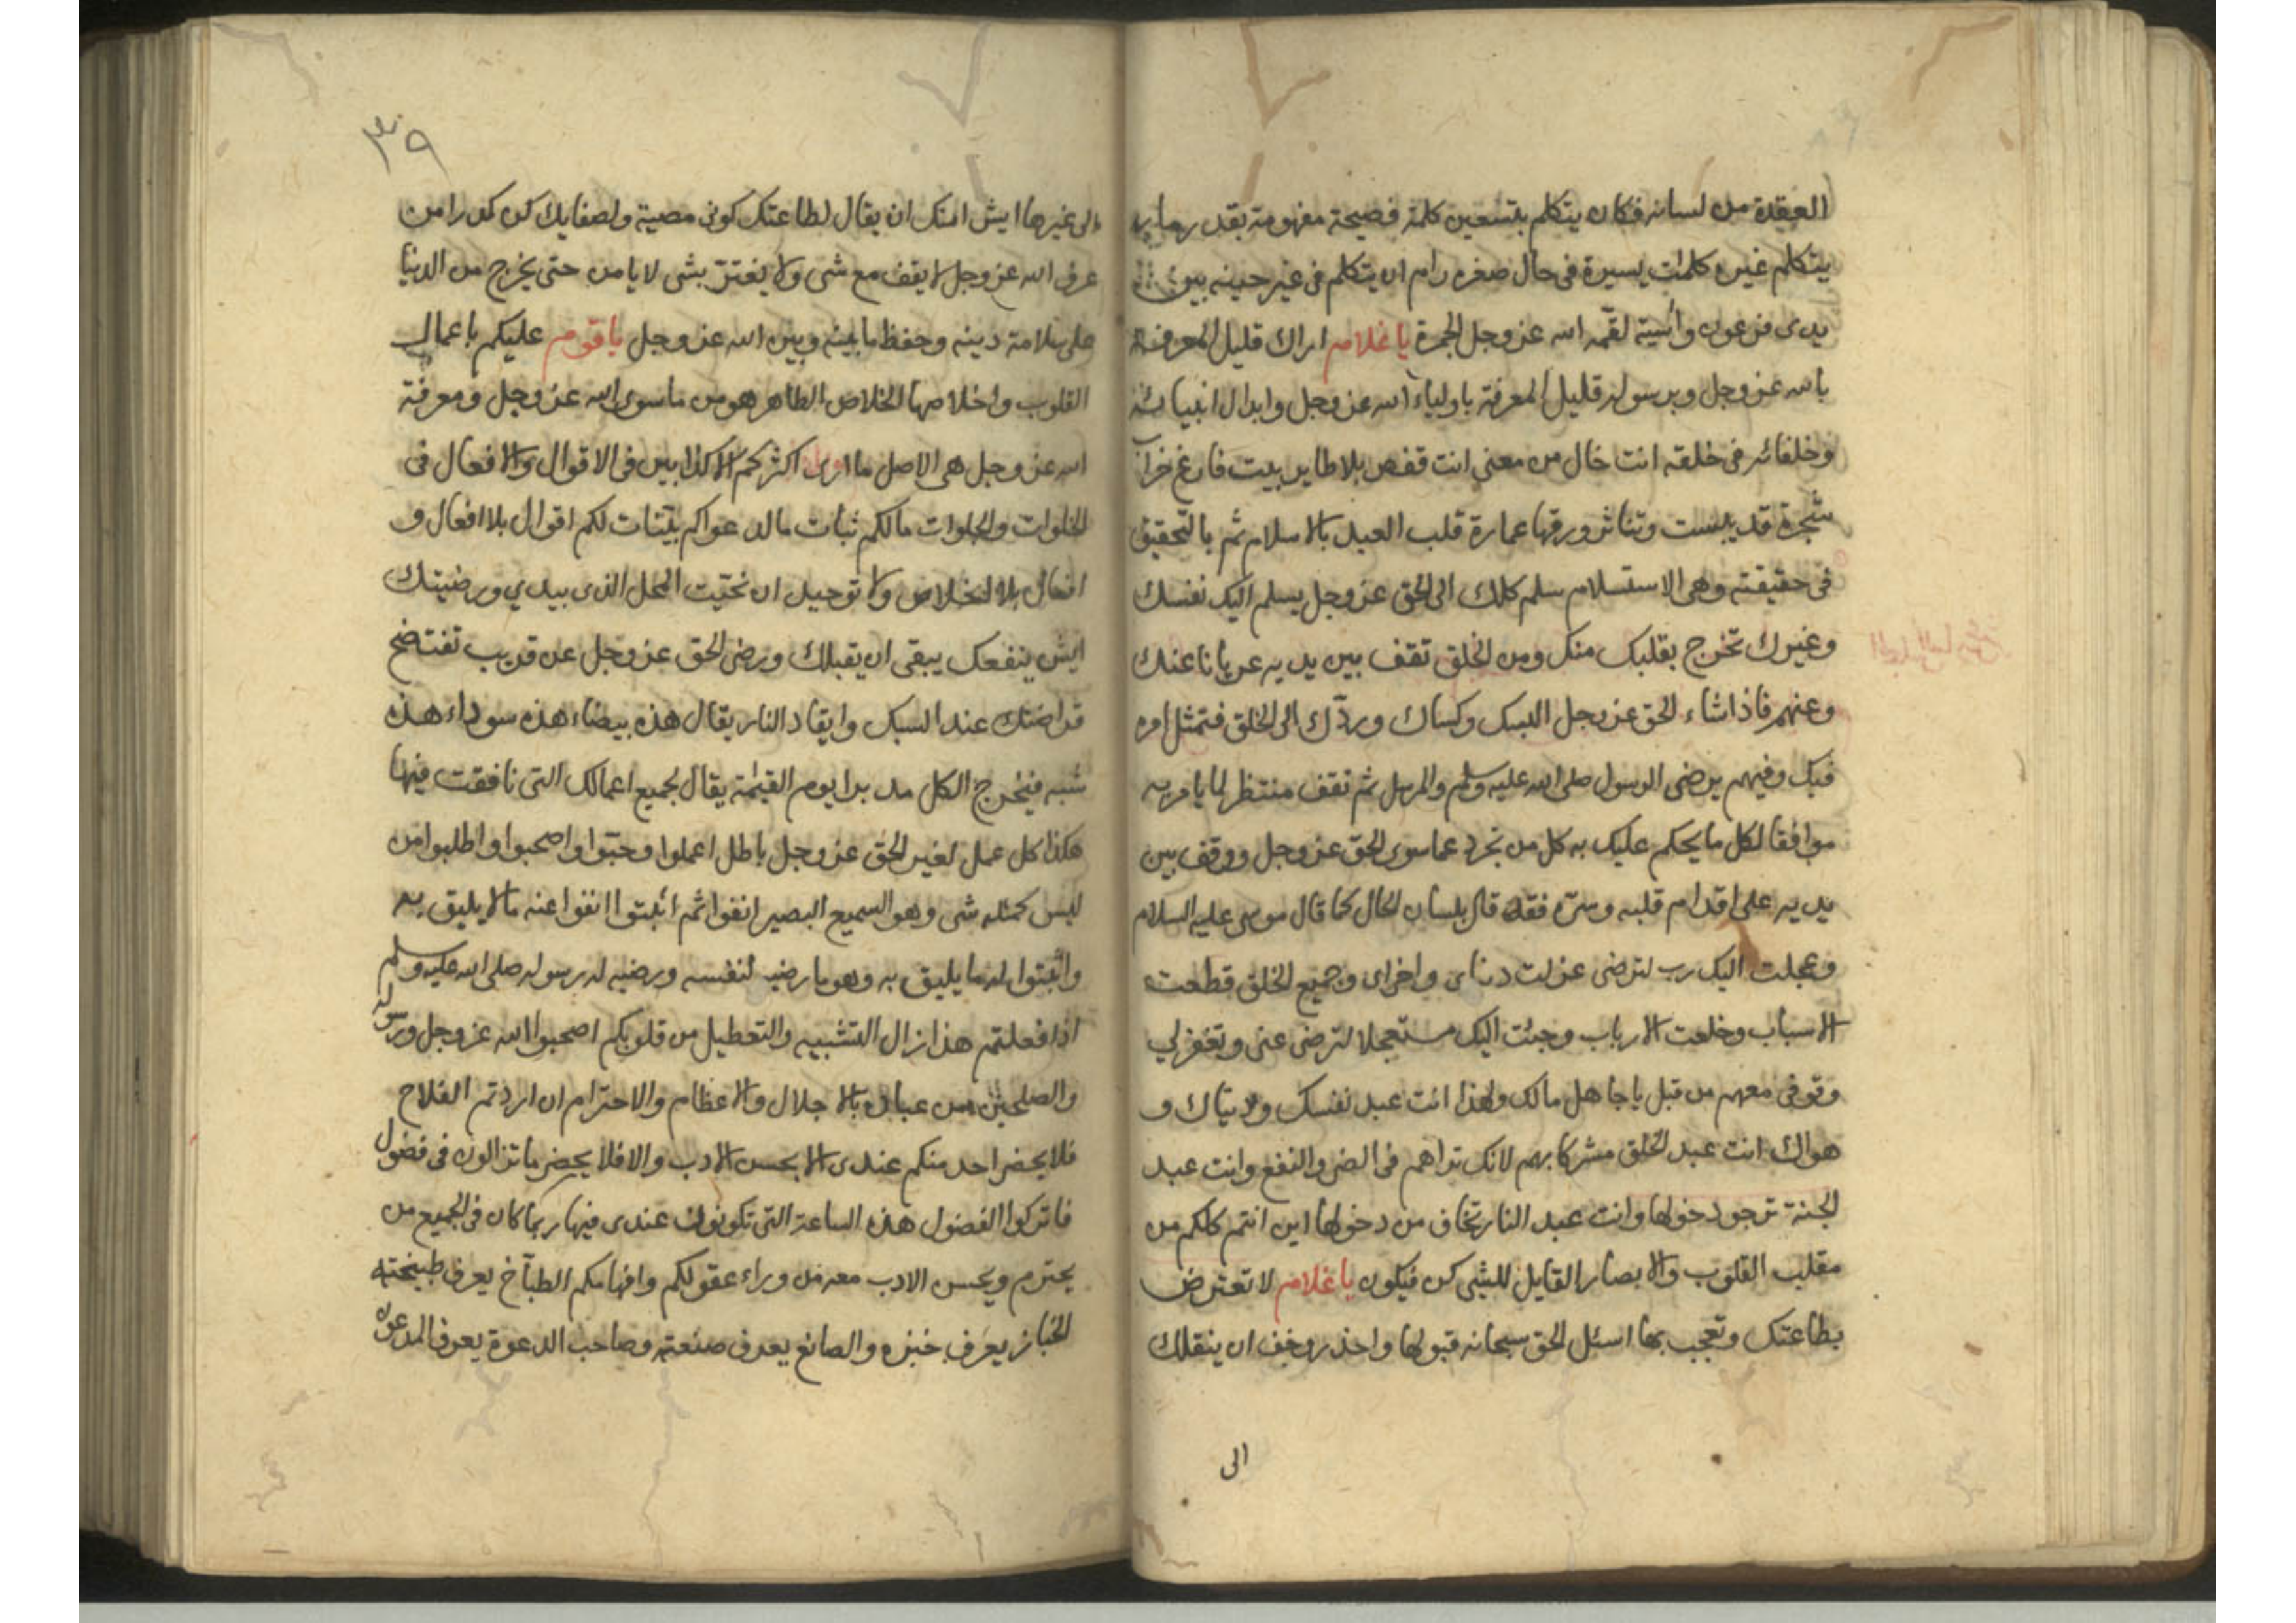 العقدة من لسانه فكان يتكلم بتسعين كلمة فصيحة مفهومة بقدر ما
يتكلم غيره كلمات يسيرة فى حال صغره رام ان يتكلم فى غير حينه بين
يدى فرعون وآسية لقمه الله عز وجل الجمرة يا غلام اراك قليل المعرفة
بالله عز وجل وبرسوله قليل المعرفة باولياء الله عز وجل وابدال انبيائه
وخلفائه فى خلقه انت خال من معنى انت قفص بلا طاير بيت فارغ خراب
شجرة قد يبست وتناثر ورقها عمارة قلب العبد بالاسلام ثم بالتحقيق
فى حقيقته وهى الاستسلام سلم كلك الى الحق عز وجل يسلم اليك نفسك
وغيرك تخرج بقلبك منك ومن الخلق تقف بين يديه عريانا عنك
وعنهم فاذا شاء الحق عز وجل البسك وكساك وردّك الى الخلق فتمثل امره
فيك وفيهم برضى الرسول صلى الله عليه وسلم والمرسل ثم تقف منتظر لما يامر به
موافقا لكل ما يحكم عليك به كل من تجرد عما سوى الحق عز وجل ووقف بين
يديه على اقدام قلبه وسرّه فقد قال بلسان الحال كما قال موسى عليه السلام
وعجلت اليك رب لترضى عزلت دنياى واخراى وجميع الخلق قطعت
الاسباب وخلعت الارباب وجئت اليك مستعجلا لترضى عنى وتغفر لي
وقوفى معهم من قبل يا جاهل مالك ولهذا انت عبد نفسك ودنياك و
هواك انت عبد الخلق مشرك بهم لانك تراهم فى الضر والنفع وانت عبد
الجنة ترجو دخولها وانت عبد النار تخاف من دخولها اين انتم كلكم من
مقلب القلوب والابصار القايل للشى كن فيكون يا غلام لا تعترض
بطاعتك وتعجب بها اسئل الحق سبحانه قبولها واحذر وخف ان ينقلك
الى
٣٩
الى غيرها ايش امنك ان يقال لطاعتك كونى معصية ولصفايك كن كدرا من
عرف الله عز وجل لا يقف مع شى ولا يغترّ بشى لا يامن حتى يخرج من الدنيا
على سلامة دينه وحفظ ما بينه وبين الله عز وجل يا قوم عليكم باعمال
القلوب واخلاصها الخلاص الطاهر هو من ما سوى الله عز وجل ومعرفة
الله عز وجل هى الاصل ما ارى اكثركم الا كذابين فى الاقوال والافعال فى
الخلوات والجلوات مالكم ثبات مالدعواكم بيّنات لكم اقوال بلا افعال و
افعال بلا اخلاص ولا توحيد ان نحّيت المحل الذى بيدي ورضيتك
ايش ينفعك يبقى ان يقبلك ورضى الحق عز وجل عن قريب تفتضح
قراضتك عند السبك وايقاد النار يقال هذه بيضاء هذه سوداء هذه
شبه فيخرج الكل مدبرا يوم القيمة يقال لجميع اعمالك التى نافقت فيها
هكذا كل عمل لغير الحق عز وجل باطل اعملوا وحبّوا واصحبوا واطلبوا من
ليس كمثله شى وهو السميع البصير انفوا ثم اثبتوا انفوا عنه مالا يليق به
واثبتوا له ما يليق به وهو ما رضيه لنفسه ورضيه له رسوله صلى الله عليه وسلم
اذا فعلتم هذا زال التشبيه والتعطيل من قلوبكم اصحبوا الله عز وجل ورسوله
والصلحين من عباده بالاجلال والاعظام والاحترام ان اردتم الفلاح
فلا يحضر احد منكم عندى الا بحسن الادب والا فلا يحضر ما تزالون فى فضول
فاتركوا الفضول هذه الساعة التى تكونون عندى فيها ربما كان فى الجميع من
يحترم ويحسن الادب معه من وراء عقولكم وافهامكم الطبآخ يعرف طبيخته
الخباز يعرف خبزه والصانع يعرف صنعته وصاحب الدعوة يعرف المدعوّ